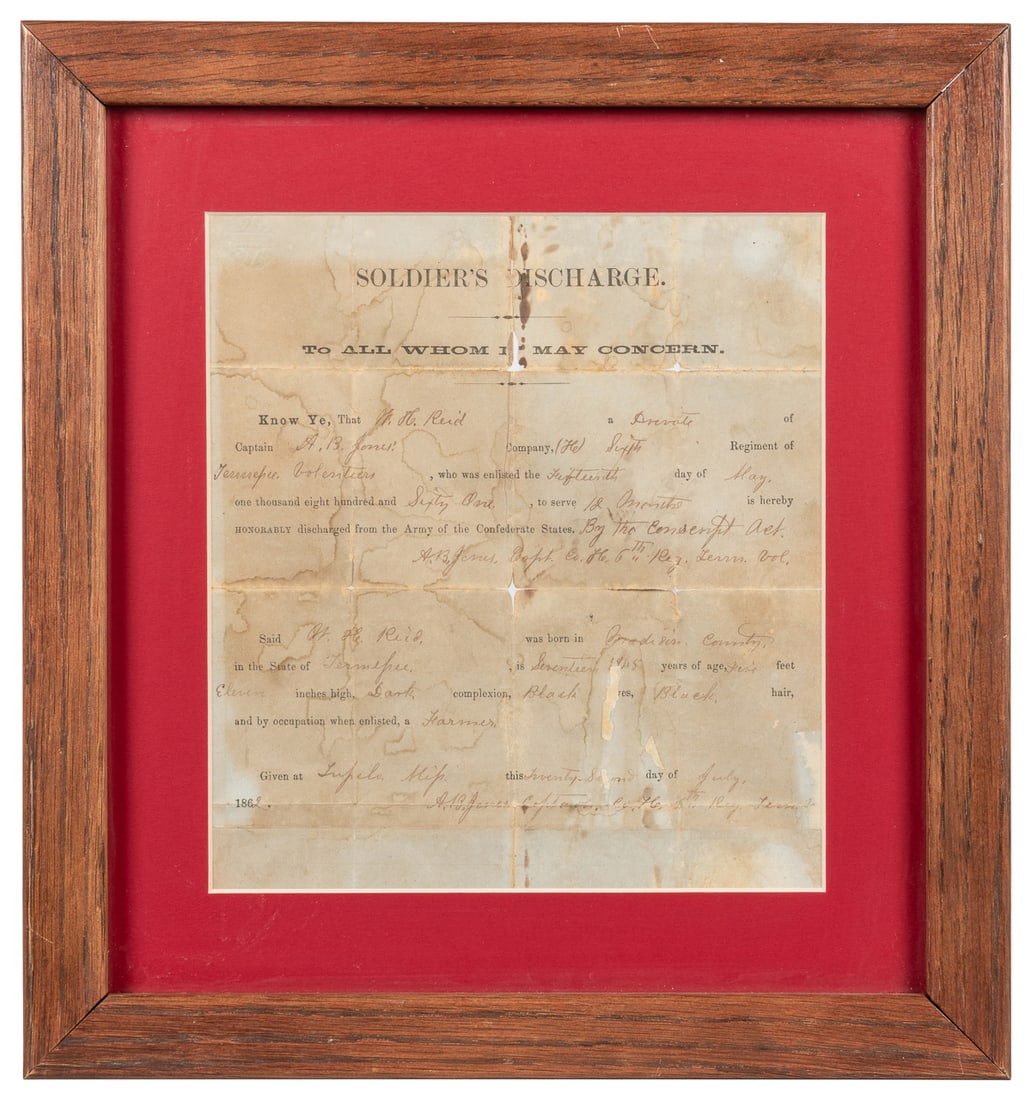 SOLDIER'S DISCHARGE.
TO ALL WHOM IT MAY CONCERN.
Know Ye, That W. H. Reid a Private of
Captain A. B. Jones' Company, (H) Sixth Regiment of
Tennessee Volunteers, who was enlisted the Fifteenth day of May,
one thousand eight hundred and Sixty One, to serve 12 Months is hereby
HONORABLY discharged from the Army of the Confederate States. By the Conscript Act.
A. B. Jones, Capt. Co. H. 6th Reg. Tenn. Vol.
Said W. H. Reid, was born in Madison County,
in the State of Tennessee, is Seventeen years of age, Five feet
Eleven inches high, Dark complexion, Black eyes, Black hair,
and by occupation when enlisted, a Farmer
Given at Tupelo Miss this Twenty-Second day of July,
1862. A. B. Jones Captain, Co. H. 6th Reg Tenn